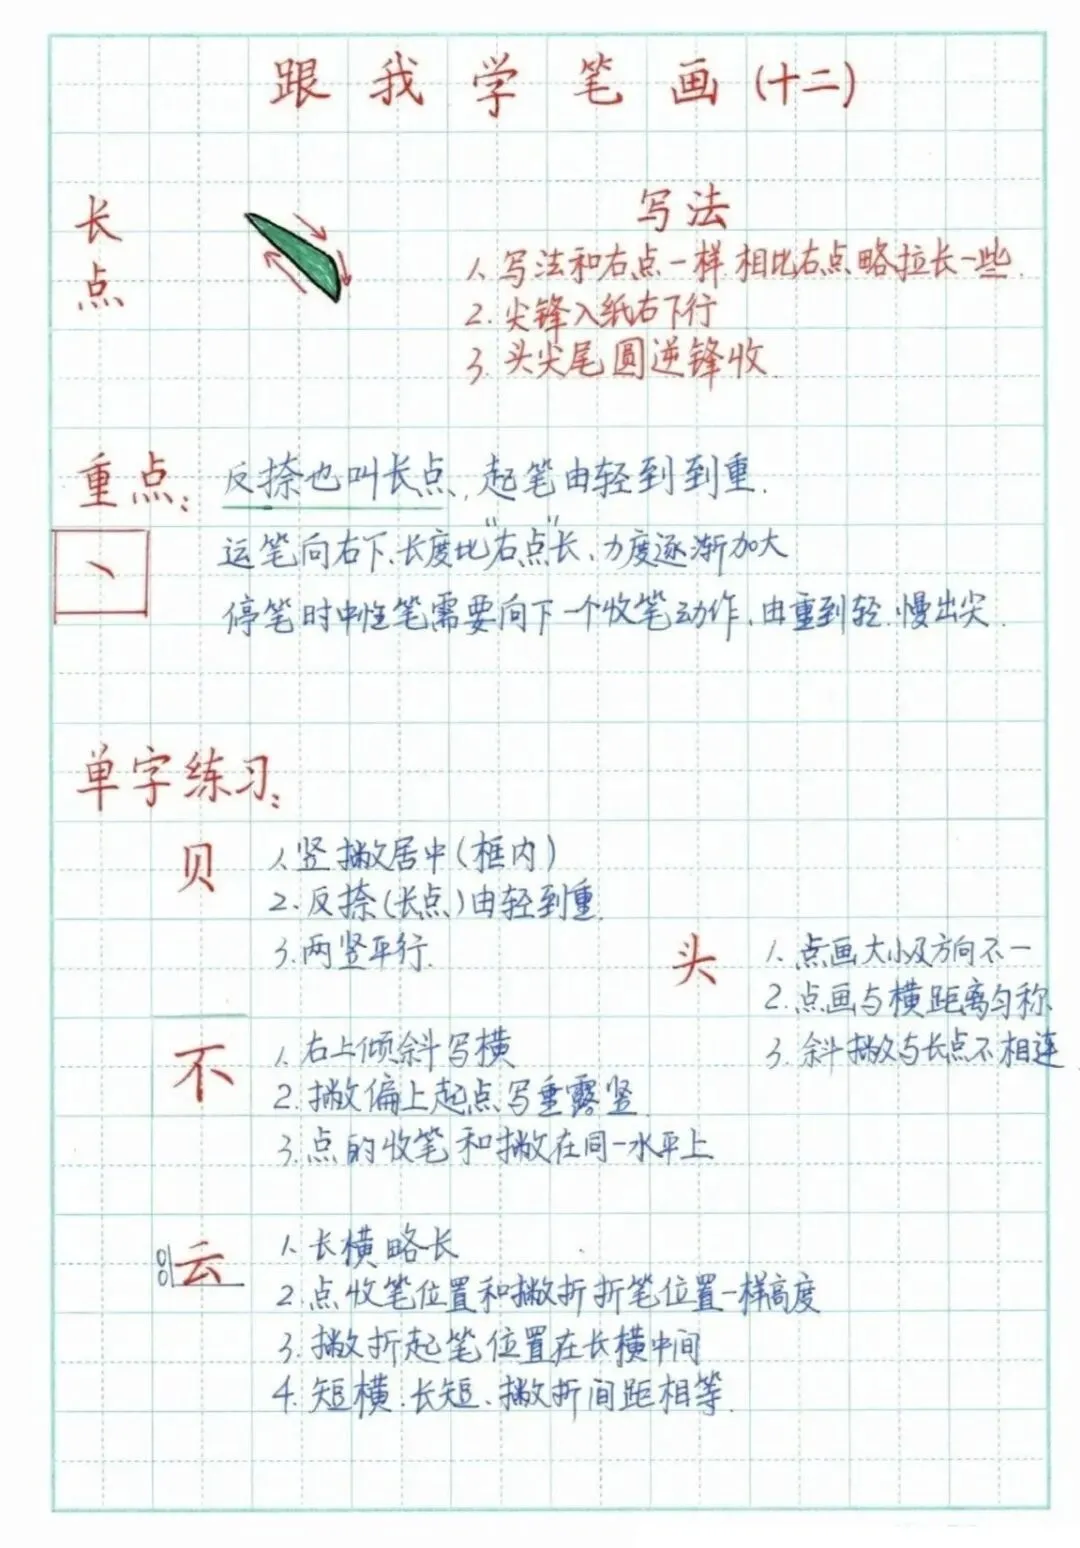 跟我学笔画(十二)
长点
写法
1. 写法和右点一样 相比右点略拉长一些.
2. 尖锋入纸右下行
3. 头尖尾圆逆锋收.
重点:
反捺也叫长点, 起笔由轻到到重.
运笔向右下、长度比"右点"长、力度逐渐加大
停笔时中性笔需要向下一个收笔动作、由重到轻.慢出尖.
丶
单字练习:
贝
1. 竖撇居中(框内)
2. 反捺(长点)由轻到重.
3. 两竖平行.
头
1. 点画大小及方向不一
2. 点画与横距离匀称
3. 斜撇与长点不相连
不
1. 右上倾斜写横
2. 撇偏上起点写垂露竖.
3. 点的收笔和撇在同一水平上
云
1. 长横略长
2. 点收笔位置和撇折折笔位置一样高度
3. 撇折起笔位置在长横中间
4. 短横.长短、撇折间距相等.